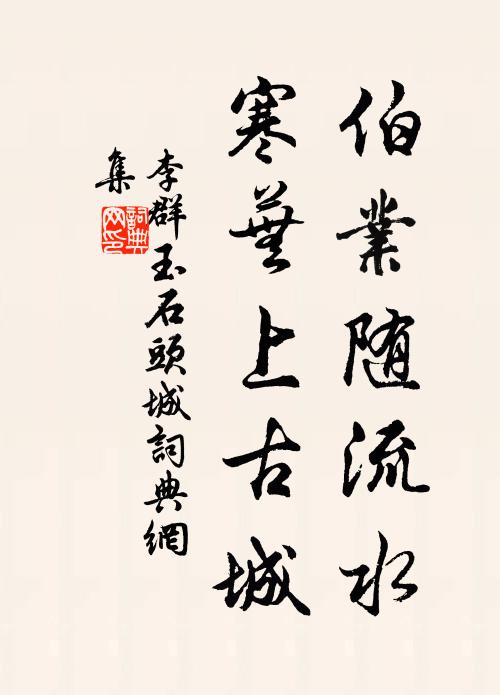 伯業随流水
寒蕪上古城
李群玉石頭城詞典網
集
詞典網印